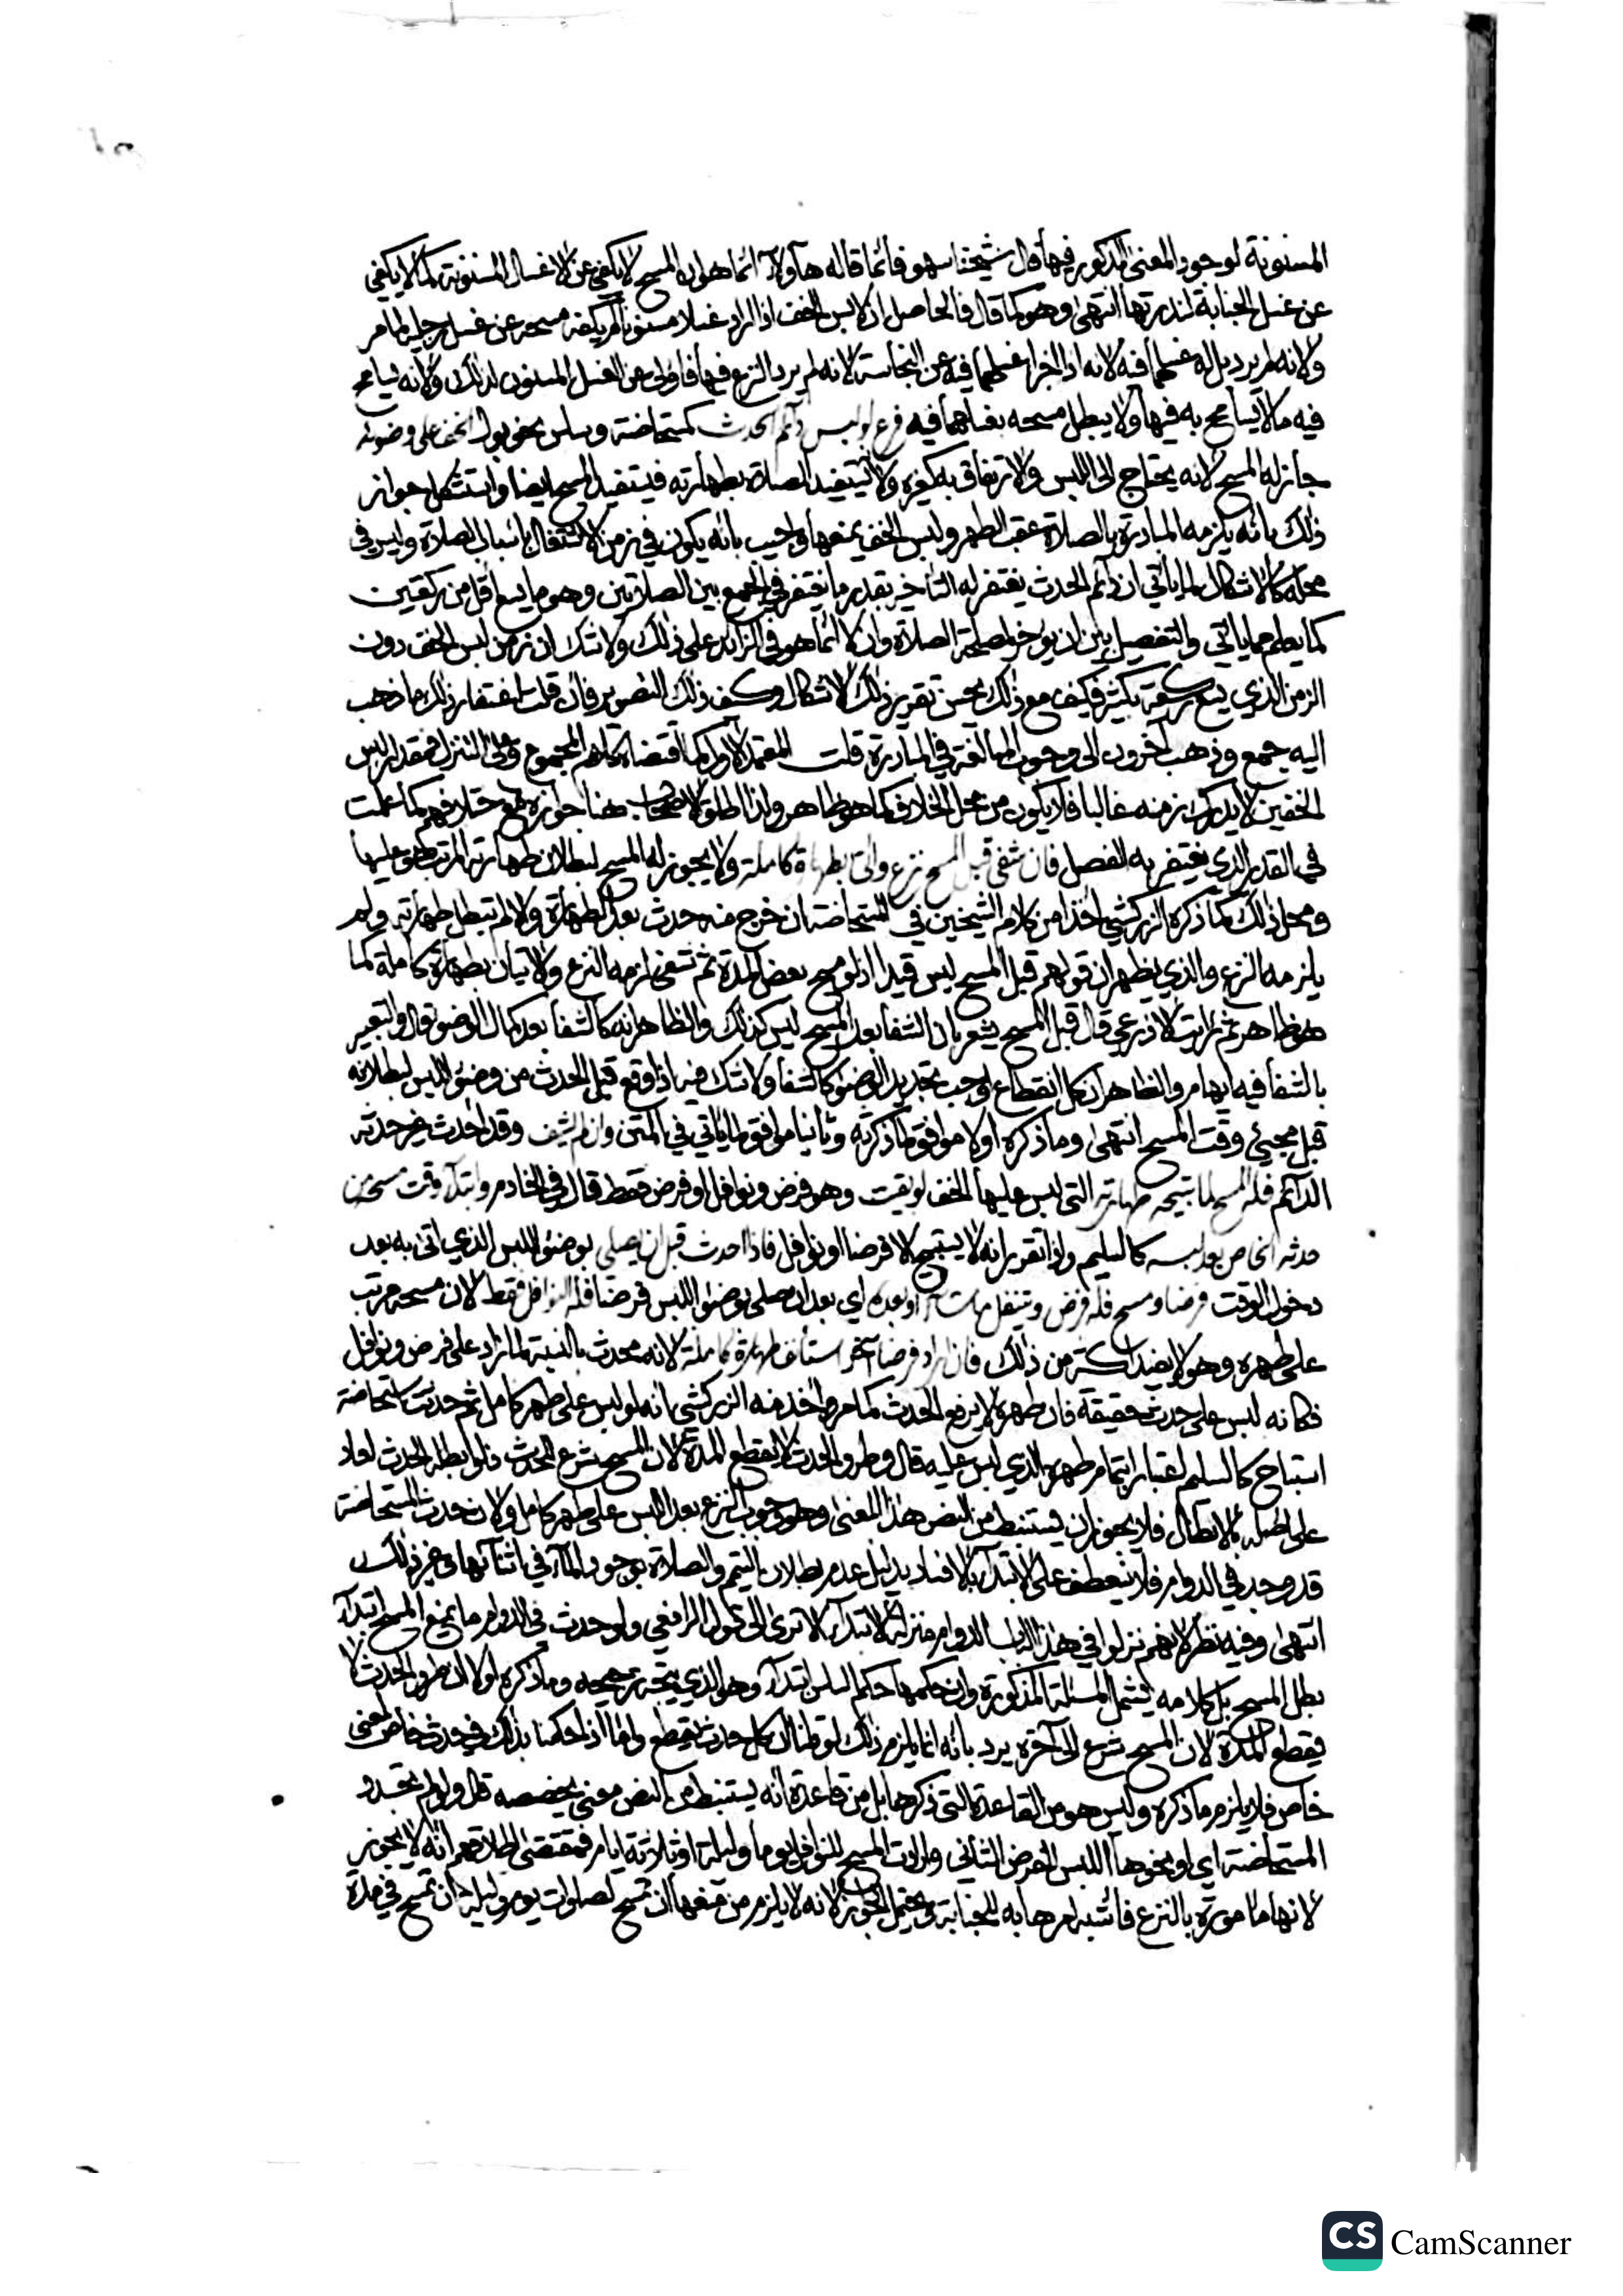 المسنونة لوجود المعنى المذكور فيها قال شيخنا سهو فانما قاله هآولاء انما هو ان المسح لا يكفي عن الاغسال المسنونة كما لا يكفي
عن غسل الجنابة لندرتها انتهى وهو كما قال فالحاصل ان لابس الخف اذا اراد غسلا مسنونا لم يكفه مسحه عن غسل رجليه لما مر
ولانه لم يرد بل له غسلهما فيه لانه اذا اجزا غسلهما فيه عن النجاسة لانه لم يرد النزع فيها فاولى عن الغسل المسنون لذلك ولانه يسامح
فيه ما لا يسامح به فيها ولا يبطل مسحه بغسلهما فيه فرع لو لبس دائم الحدث كمستحاضة وسلس بنحو بول الخف على وضوئه
جاز له المسح لانه يحتاج الى اللبس والارتفاق به كغيره ولانه يستفيد الصلاة بطهارته فيستفيد المسح ايضا واستشكل جواز
ذلك بانه يلزمه المبادرة بالصلاة عقب الطهر ولبس الخف يمنعها واجيب بانه يكون في زمن الاشتغال باسباب الصلاة وليس في
محله كالاشكال لما ياتي ان دائم الحدث يغتفر له التأخير بقدر ما يغتفر في الجمع بين الصلاتين وهو ما يسع اقل من ركعتين
كما يعلم مما ياتي والتفصيل بين ان يوخر لمصلحة الصلاة وان لا انما هو في الزائد على ذلك ولا شك ان زمن لبس الخف دون
الزمن الذي يسع ركعة بكثير فكيف مع ذلك يحسن تقرير ذلك الاشكال وكيف ذلك التصوير فان قلت اغتفار ذلك ما ذهب
اليه جمع وذهب آخرون الى وجوب المبالغة في المبادرة قلت المعتمد الاول كما اقتضاه كلام المجموع وعلى التنزل فمقدار لبس
الخفين لا يدرك زمنه غالبا فلا يكون من محل الخلاف كما هو ظاهر ولذا اطلق الاصحاب هنا جوازه مع خلافهم كما علمت
في القدر الذي يغتفر به الفصل فان شفي قبل المسح نزع واتى بطهارة كاملة ولا يجوز له المسح لبطلان طهارته المرتب هو عليها
ومحل ذلك كما ذكره الزركشي اخذا من كلام الشيخين في المستحاضة ان خرج منه حدث بعد الطهارة والا لم تبطل طهارته ولم
يلزمه النزع والذي يظهر ان قولهم قبل المسح ليس قيدا اذ لو مسح بعض المدة ثم شفي لزمه النزع والاتيان بطهارة كاملة كما
هو ظاهر ثم رايت الاذرعي قال قبل المسح يشعر بان الشفا بعد المسح ليس كذلك والظاهر انه كالشفا بعد كمال الوضو قال والتعبير
بالشفا فيه ايهام والظاهر ان كل انقطاع اوجب تجديد الوضو كالشفا ولا شك فيه اذا وقع قبل الحدث من وضوء اللبس لبطلانه
قبل مجيئ وقت المسح انتهى وما ذكره اولا موافق لما ذكرته وثانيا موافق لما ياتي في المتن وان لم يشف وقد احدث غير حدثه
الدائم فله المسح لما تبيحه طهارته التي لبس عليها الخف لو بقيت وهو فرض ونوافل او فرض فقط قال في الخادم وابتداء وقت مسحه من
حدثه الخاص بعد لبسه كالسليم واذا تقرر انه لا يستبيح الا فرضا او نوافل فاذا احدث قبل ان يصلي بوضوء اللبس الذي اتى به بعد
دخول الوقت فرضا ومسح فله فرض وتنفل ما شاء او بعده اي بعد ان صلى بوضوء اللبس فرضا فله النوافل فقط لان مسحه مرتب
على طهره وهو لا يفيد اكثر من ذلك فان اراد فرضا آخر استأنف طهارة كاملة لانه محدث بالنسبة لما زاد على فرض ونوافل
فكانه لبس على حدث حقيقة فان طهره لا يرفع الحدث كما مر واخذ منه الزركشي بانه لو لبس على طهر كامل ثم حدثت استحاضة
استباح كالسليم اعتبارا بتمام طهره الذي لبس عليه قال وطرو الحدث لا يقطع المدة لان المسح شرع للحدث فلو ابطله الحدث لعاد
على اصله بالابطال فلا يجوز ان يستنبط من النص هذا المعنى وهو وجوب النزع بعد اللبس على طهر كامل ولان حدث المستحاضة
قد وجد في الدوام فلا ينعطف على الابتداء بالافساد بدليل عدم بطلان التيمم والصلاة بوجود الماء في اثنائها وغير ذلك
انتهى وفيه نظر لانهم نزلوا في هذا الباب الدوام منزلة الابتداء الا ترى الى قول الرافعي ولو حدث في الدوام ما يمنع المسح ابتداء
بطل المسح بل كلامه يشمل المسئلة المذكورة وان حكمها حكم السلس ابتداء وهو الذي يتجه ترجيحه وما ذكره اولا ان طرو الحدث لا
يقطع المدة لان المسح شرع الى آخره يرد بانه انما يلزم ذلك لو قلنا ان كل حدث يقطع واما اذا حكمنا بذلك في حدث خاص لمعنى
خاص فلا يلزم ما ذكره وليس هو من القاعدة التي ذكرها بل من قاعدة انه يستنبط من النص معنى يخصصه قال ولو لم تجدد
المستحاضة اي او نحوها اللبس لفرض الثاني وارادت المسح للنوافل يوما وليلة او ثلاثة ايام فمقتضى اطلاقهم انه لا يجوز
لانها مامورة بالنزع فاشبه امرها به للجنابة ويحتمل الجواز لانه لا يلزم من منعها ان تمسح لصلوات يوم وليلة ان تمسح في مدة
CS CamScanner